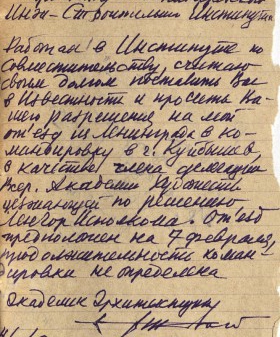 Инж.-Строительный Институт
Работая в Институте по
совместительству, считаю
своим долгом поставить Вас
в известность и просить Ва-
шего разрешение на мой
от'езд из Ленинграда в ко-
мандировку в г. Куйбышев,
в качестве члена делегации
Всер. Академии Художеств
уезжающей по решению
Ленгор Исполкома. От'езд
предположен на 7 февраля,
продолжительность коман-
дировки не определена
Академик Архитектуры